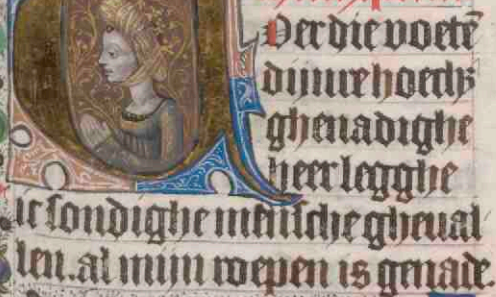 VOer die voetē
dijnre hoechs
ghenadighe
heer legghe
ic sondighe mensche gheual
len. al mijn roepen is genade